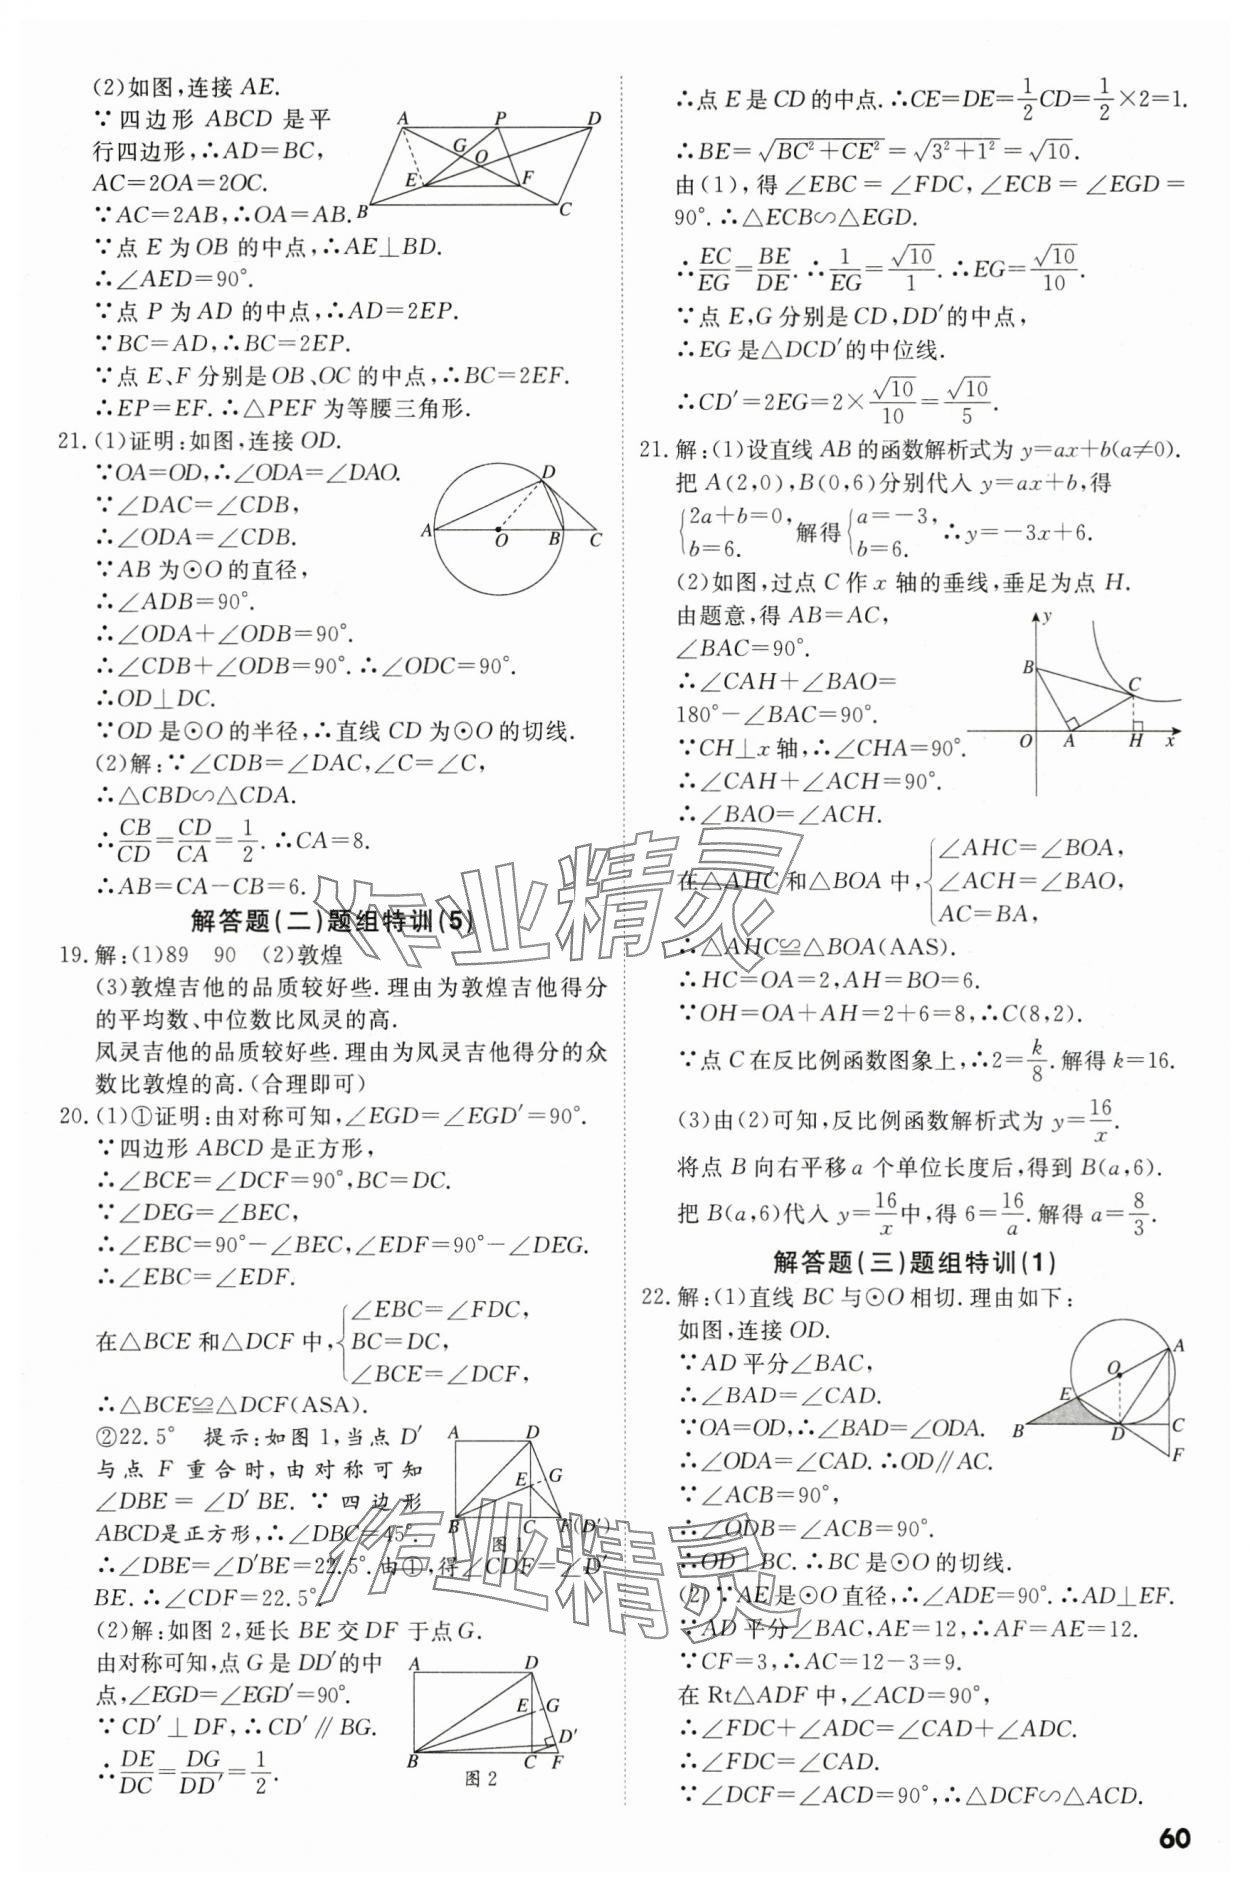 (2)如图,连接 AE.
∵四边形 ABCD 是平
行四边形,∴AD=BC,
AC=2OA=2OC.
∵AC=2AB,∴OA=AB.
∵点 E 为 OB 的中点,∴AE⊥BD.
∴∠AED=90°.
∵点 P 为 AD 的中点,∴AD=2EP.
∵BC=AD,∴BC=2EP.
∵点 E、F 分别是 OB、OC 的中点,∴BC=2EF.
∴EP=EF.∴△PEF 为等腰三角形.
A P D G O E F B C
21.(1)证明:如图,连接 OD.
∵OA=OD,∴∠ODA=∠DAO.
∵∠DAC=∠CDB,
∴∠ODA=∠CDB.
∵AB 为⊙O 的直径,
∴∠ADB=90°.
∴∠ODA+∠ODB=90°.
∴∠CDB+∠ODB=90°.∴∠ODC=90°.
∴OD⊥DC.
∵OD 是⊙O 的半径,∴直线 CD 为⊙O 的切线.
D A O B C
(2)解:∵∠CDB=∠DAC,∠C=∠C,
∴△CBD∽△CDA.
∴CB/CD=CD/CA=1/2.∴CA=8.
∴AB=CA-CB=6.
解答题(二)题组特训(5)
19.解:(1)89 90 (2)敦煌
(3)敦煌吉他的品质较好些.理由为敦煌吉他得分
的平均数、中位数比凤灵的高.
凤灵吉他的品质较好些.理由为凤灵吉他得分的众
数比敦煌的高.(合理即可)
20.(1)①证明:由对称可知,∠EGD=∠EGD′=90°.
∵四边形 ABCD 是正方形,
∴∠BCE=∠DCF=90°,BC=DC.
∵∠DEG=∠BEC,
∴∠EBC=90°-∠BEC,∠EDF=90°-∠DEG.
∴∠EBC=∠EDF.
在△BCE 和△DCF 中,{∠EBC=∠FDC,
BC=DC,
∠BCE=∠DCF,
∴△BCE≌△DCF(ASA).
②22.5° 提示:如图1,当点 D′
与点 F 重合时,由对称可知
∠DBE=∠D′BE.∵四边形
ABCD是正方形,∴∠DBC=45°.
∴∠DBE=∠D′BE=22.5°.由①,得∠CDF=∠D′
BE.∴∠CDF=22.5°.
A D E G B C F(D′)
图1
(2)解:如图2,延长 BE 交 DF 于点G.
由对称可知,点 G 是 DD′的中
点,∠EGD=∠EGD′=90°.
∵CD′⊥DF,∴CD′∥BG.
∴DE/DC=DG/DD′=1/2.
A D E G D′ B C F
图2
∴点 E 是 CD 的中点.∴CE=DE=1/2CD=1/2×2=1.
∴BE=√(BC²+CE²)=√(3²+1²)=√10.
由(1),得∠EBC=∠FDC,∠ECB=∠EGD=
90°.∴△ECB∽△EGD.
∴EC/EG=BE/DE.∴1/EG=√10/1.∴EG=√10/10.
∵点 E,G 分别是 CD,DD′的中点,
∴EG 是△DCD′的中位线.
∴CD′=2EG=2×√10/10=√10/5.
21.解:(1)设直线 AB 的函数解析式为 y=ax+b(a≠0).
把 A(2,0),B(0,6)分别代入 y=ax+b,得
{2a+b=0, b=6. 解得{a=-3, b=6. ∴y=-3x+6.
(2)如图,过点 C 作 x 轴的垂线,垂足为点 H.
由题意,得 AB=AC,
∠BAC=90°.
∴∠CAH+∠BAO=
180°-∠BAC=90°.
∵CH⊥x 轴,∴∠CHA=90°.
∴∠CAH+∠ACH=90°.
∴∠BAO=∠ACH.
y B C O A H x
在△AHC 和△BOA 中,{∠AHC=∠BOA,
∠ACH=∠BAO,
AC=BA,
∴△AHC≌△BOA(AAS).
∴HC=OA=2,AH=BO=6.
∵OH=OA+AH=2+6=8,∴C(8,2).
∵点 C 在反比例函数图象上,∴2=k/8.解得 k=16.
(3)由(2)可知,反比例函数解析式为 y=16/x.
将点 B 向右平移 a 个单位长度后,得到 B(a,6).
把 B(a,6)代入 y=16/x中,得 6=16/a.解得 a=8/3.
解答题(三)题组特训(1)
22.解:(1)直线 BC 与⊙O 相切.理由如下:
如图,连接 OD.
∵AD 平分∠BAC,
∴∠BAD=∠CAD.
∵OA=OD,∴∠BAD=∠ODA.
∴∠ODA=∠CAD.∴OD∥AC.
∵∠ACB=90°,
∴∠ODB=∠ACB=90°.
∴OD⊥BC.∴BC 是⊙O 的切线.
A O E B D C F
(2)∵AE 是⊙O 直径,∴∠ADE=90°.∴AD⊥EF.
∵AD 平分∠BAC,AE=12,∴AF=AE=12.
∵CF=3,∴AC=12-3=9.
在 Rt△ADF 中,∠ACD=90°,
∴∠FDC+∠ADC=∠CAD+∠ADC.
∴∠FDC=∠CAD.
∵∠DCF=∠ACD=90°,∴△DCF∽△ACD.
60
作业精灵
作业精灵